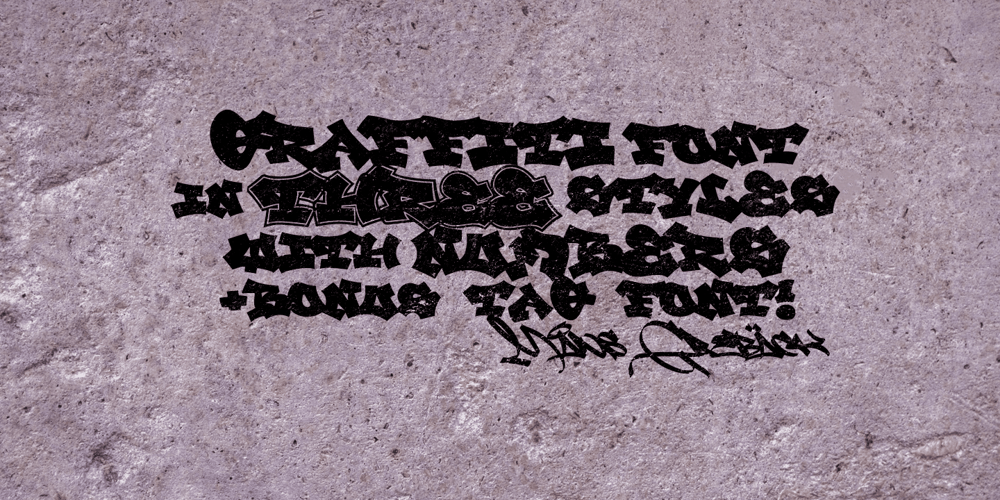 GRAFFITI FONT
IN THREE STYLES
WITH NUMBERS
+BONUS TAG FONT!